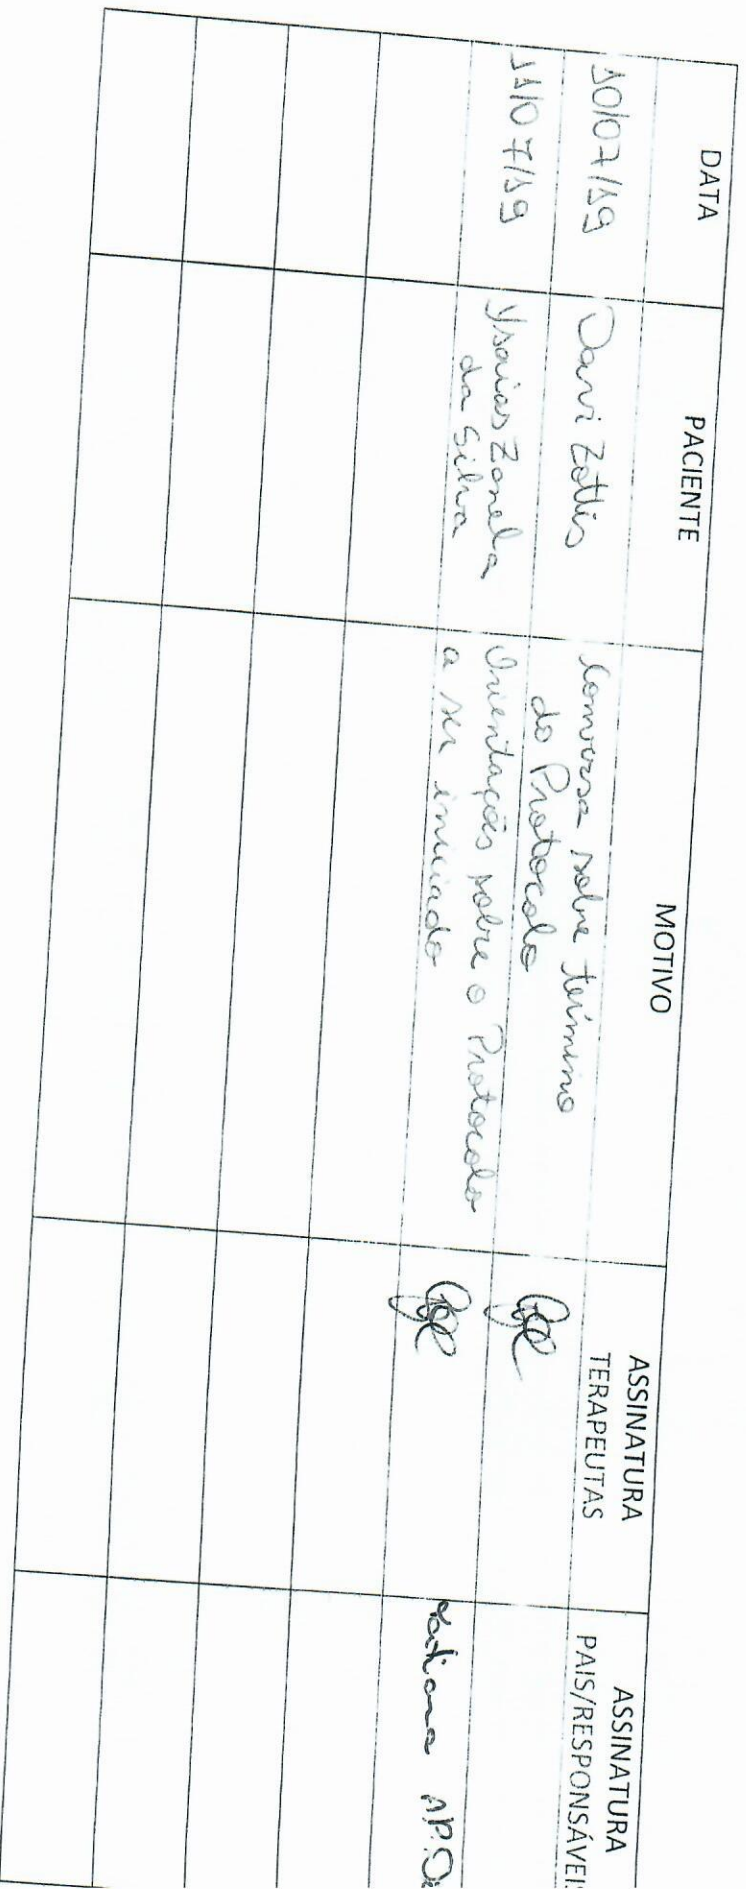 DATA
PACIENTE
MOTIVO
ASSINATURA
TERAPEUTAS
ASSINATURA
PAIS/RESPONSÁVEIS
10/07/19
Davi Zottis
Conversa sobre término
do Protocolo
11/07/19
Ysaias Zanela
da Silva
Orientações sobre o Protocolo
a ser iniciado